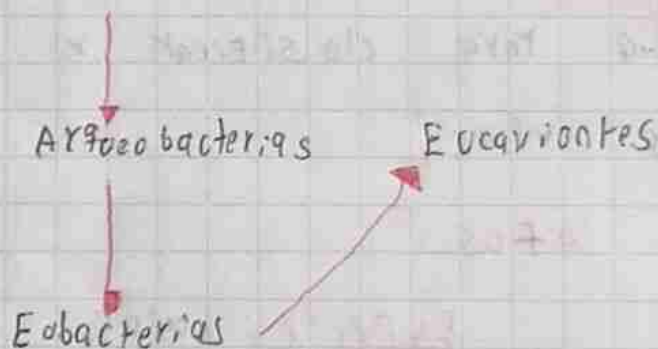 Arqueobacterias
Eucariontes
Eubacterias